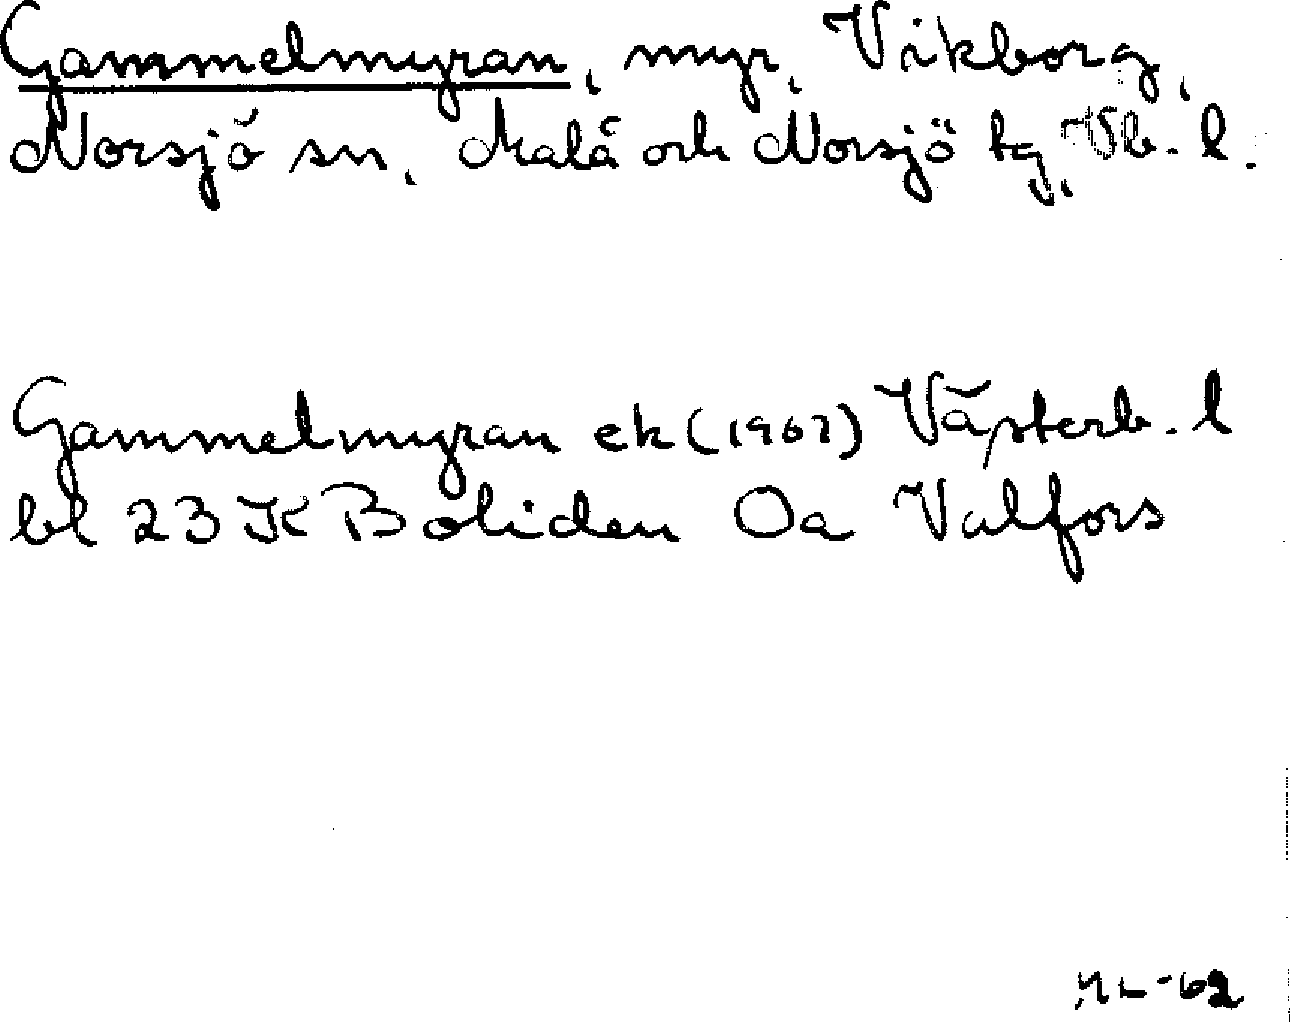 Gammelmyran, myr, Vikborg,
Norsjö sn, Malå och Norsjö tg, Vb. l.
Gammelmyran ek (1967) Västerb. l
bl 23 K Boliden Oa Valfors